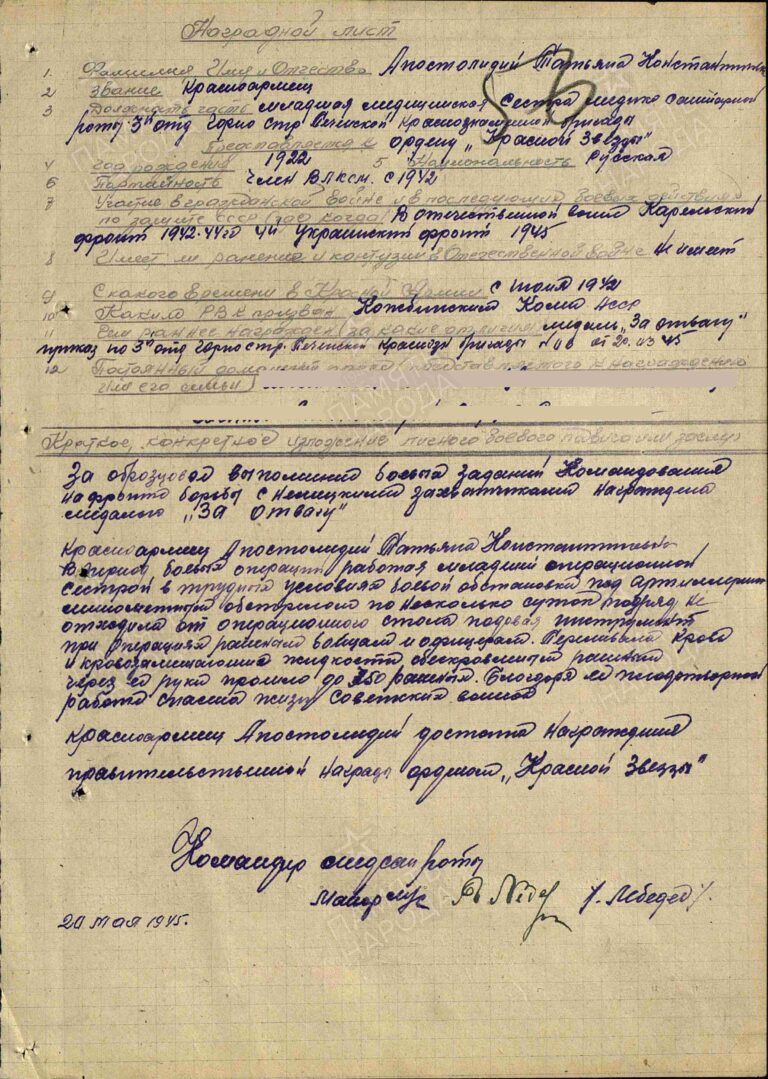 Наградной лист
1. Фамилия Имя и Отчество Апостолиди Татьяна Константин
2 звание Красноармеец
3 Должность часть младшая медицинская сестра медико санитарной
роты 3й отд горно стр Печенской Краснознаменной бригады
Представляется к ордену „Красной Звезды"
4 год рождения 1922 5 Национальность Русская
6 Партийность член ВЛКСМ с 1942
7 Участие в гражданской войне и в последующих боевых действиях
по защите СССР (где когда) В отечественной войне Карельский
фронт 1942-44гд 4й Украинский фронт 1945
8 Имеет ли ранение и контузии в Отечественной войне не имеет
9 С какого времени в Красной Армии с июля 1942
10 Каким РВК призван
11 Чем раннее награжден (за какие отличия) медаль „За отвагу"
приказ по 3й отд горно стр. Печенской Краснозн бригады от 20.03.45
12 Постоянный домашний представляемого к награждению
или его семьи
Краткое, конкретное изложение личного боевого подвига или заслуг
За образцовое выполнение боевых заданий Командования
на фронте борьбы с немецкими захватчиками награждена
медалью „За отвагу"
Красноармеец Апостолиди Татьяна Константиновна
в период боевых операций работая младшей операционной
сестрой в трудных условиях боевой обстановки под артиллерийс
минометным обстрелом по несколько суток подряд не
отходила от операционного стола подавая инструмент
при операциях раненым бойцам и офицерам. Переливала кровь
и кровозамещающие жидкости обескровленным раненым
через её руки прошло до 350 раненых. Благодаря её плодотворной
работе спасены жизни советских воинов
Красноармеец Апостолиди достойна награждения
правительственной награды орденом „Красной Звезды"
Командир медсан роты
Майор м/с /Лебедев/.
20 мая 1945.
ПАМЯТЬ
НАРОДА